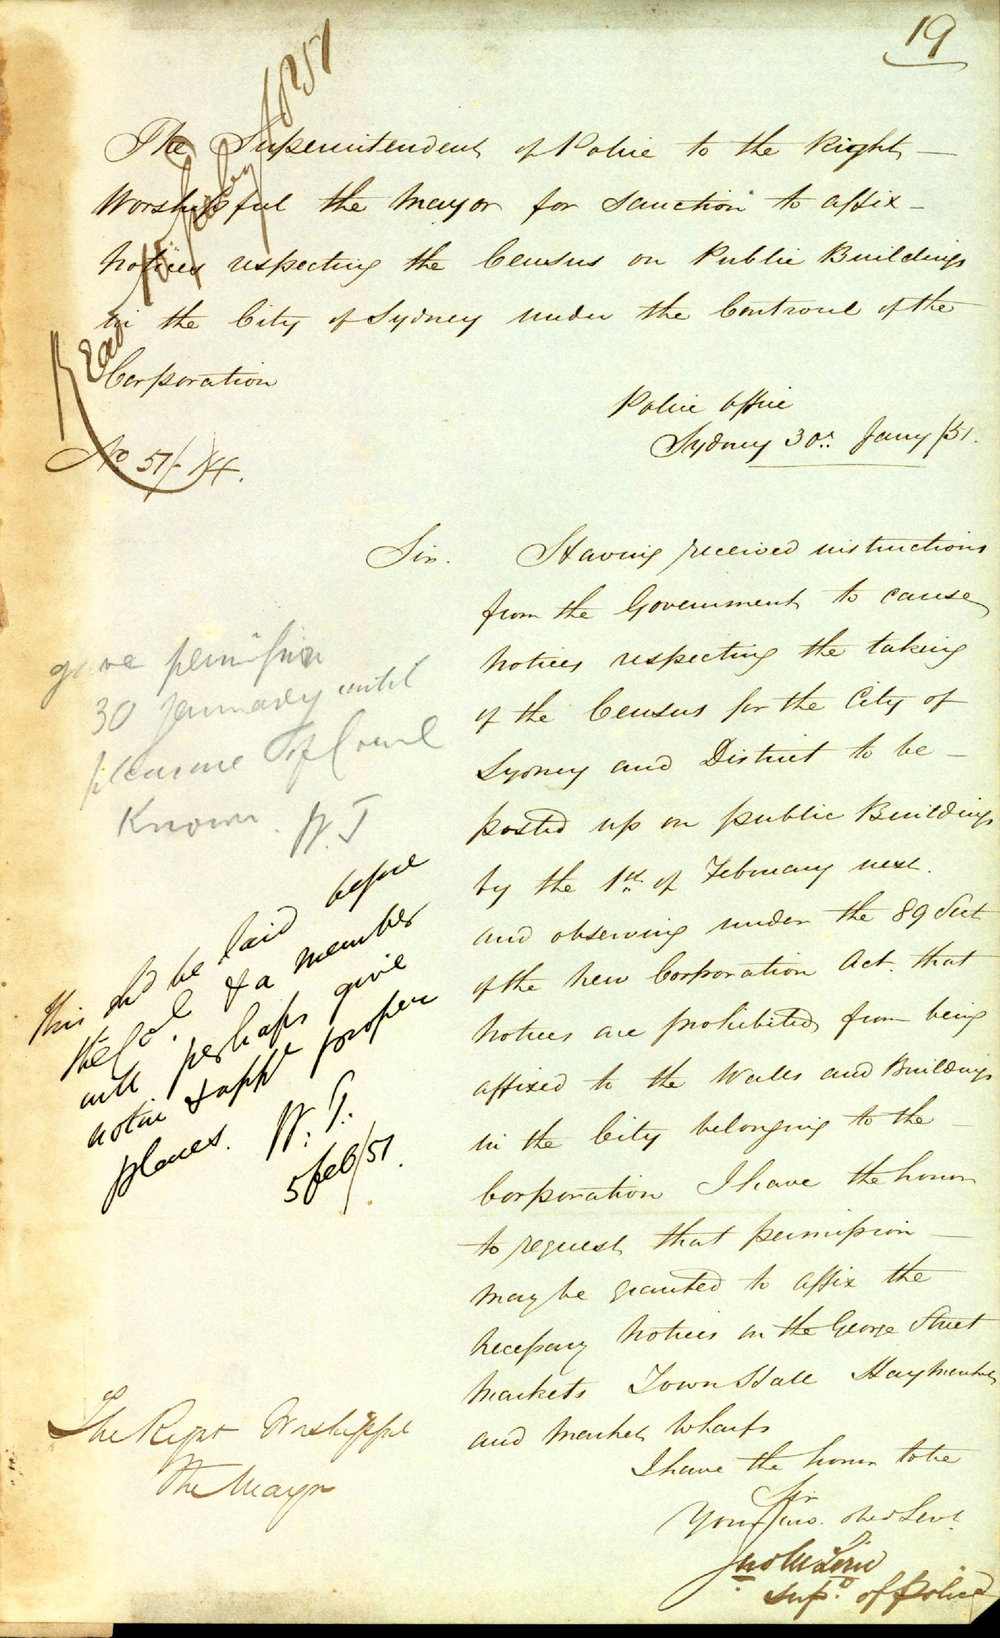 19
The Superintendent of Police to the Right
Worshipful the Mayor for Sanction to affix
Notices respecting the Census on Public Buildings
in the City of Sydney under the Controul of the
Corporation
Read 10 Feby 1851
Police Office
Sydney 30th Jany /51.
No 51/-
Sir. Having received instructions
from the Government to cause
Notices respecting the taking
of the Census for the City of
Sydney and District to be
posted up on public Buildings
by the 1st of February next.
and observing under the 89 Sect
of the New Corporation Act. that
Notices are prohibited from being
affixed to the Walls and Buildings
in the City belonging to the
Corporation I have the honor
to request that permission
may be granted to affix the
necessary Notices on the George Street
Markets Town Hall Haymarket
and Market Wharfs
I have the honor to be
Sir
Your obed Servt
Supt. of Police
gave permission
30 January until
pleasure of Council
Known. W. T
This shd be laid before
the Col. & a member
will perhaps give
notice & proper
places. W. T.
5 feb/51.
The Right Worshipful
The Mayor